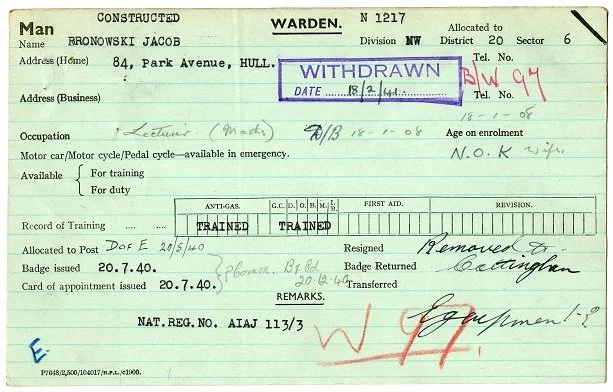 CONSTRUCTED
Man WARDEN. N 1217 Allocated to
Name BRONOWSKI JACOB Division NW District 20 Sector 6
Address (Home) 84, Park Avenue, HULL. Tel. No.
WITHDRAWN
DATE 18/2/41.
B/W 97
Address (Business) Tel. No.
18-1-08
Occupation Lecturer (Maths) D/B 18-1-08 Age on enrolment
Motor car/Motor cycle/Pedal cycle—available in emergency. N.O.K wife
Available { For training
For duty
ANTI-GAS. G.C. D. O. B. M. I.B. FIRST AID. REVISION.
Record of Training .... .... TRAINED TRAINED
Allocated to Post D of E 20/5/40 Resigned Removed to
Badge issued 20.7.40. Comm. Badge Returned Cottingham
Card of appointment issued 20.7.40. 20.12.40 Transferred
REMARKS.
NAT.REG.NO. AIAJ 113/3 W 97 Equipment-?
E.
P7648/2,500/104017/H.P.L./c1900.